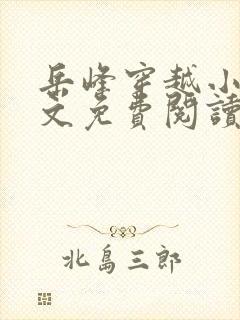 岳峰穿越小
文免費閱讀
北島三郎